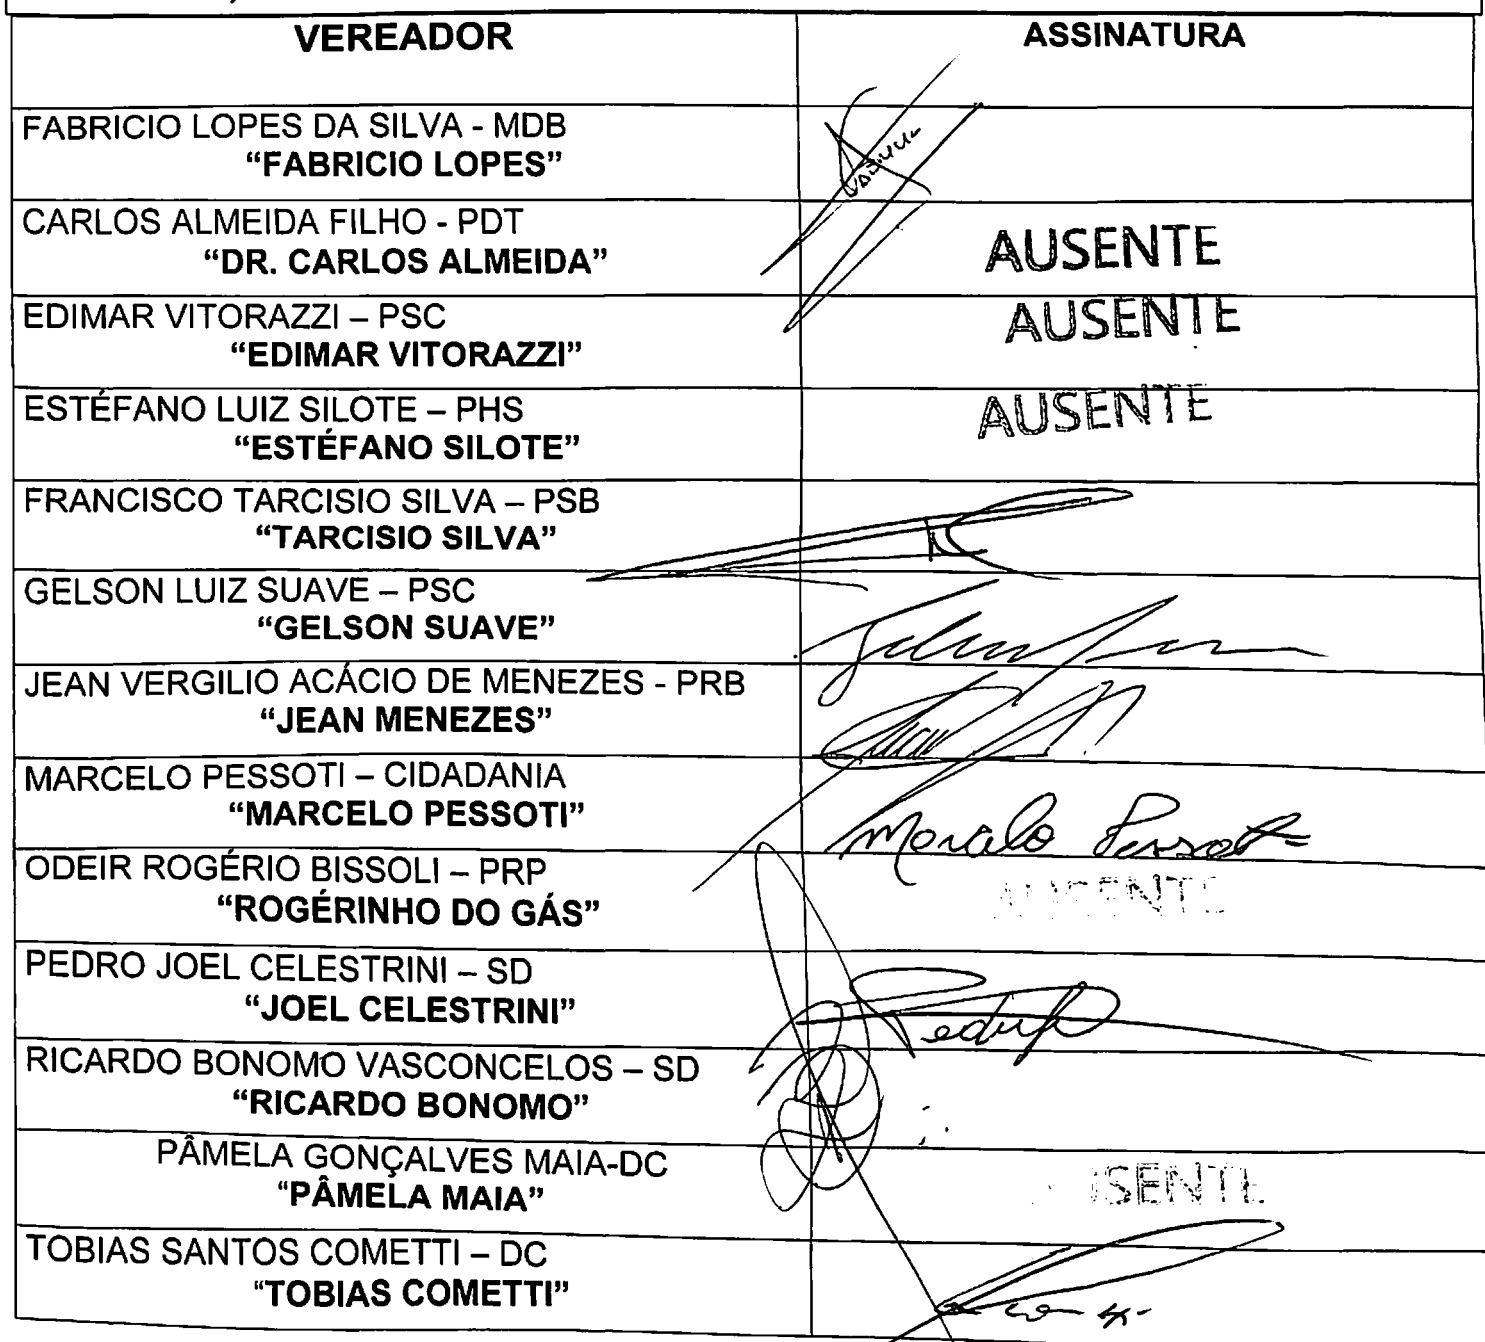 VEREADOR ASSINATURA
FABRICIO LOPES DA SILVA - MDB
“FABRICIO LOPES”
CARLOS ALMEIDA FILHO - PDT
“DR. CARLOS ALMEIDA” AUSENTE
EDIMAR VITORAZZI – PSC AUSENTE
“EDIMAR VITORAZZI”
ESTÉFANO LUIZ SILOTE – PHS AUSENTE
“ESTÉFANO SILOTE”
FRANCISCO TARCISIO SILVA – PSB
“TARCISIO SILVA”
GELSON LUIZ SUAVE – PSC
“GELSON SUAVE”
JEAN VERGILIO ACÁCIO DE MENEZES - PRB
“JEAN MENEZES”
MARCELO PESSOTI – CIDADANIA
“MARCELO PESSOTI” Marcelo Pessoti
ODEIR ROGÉRIO BISSOLI – PRP AUSENTE
“ROGÉRINHO DO GÁS”
PEDRO JOEL CELESTRINI – SD
“JOEL CELESTRINI”
RICARDO BONOMO VASCONCELOS – SD
“RICARDO BONOMO”
PÂMELA GONÇALVES MAIA-DC
“PÂMELA MAIA” AUSENTE
TOBIAS SANTOS COMETTI – DC
“TOBIAS COMETTI”